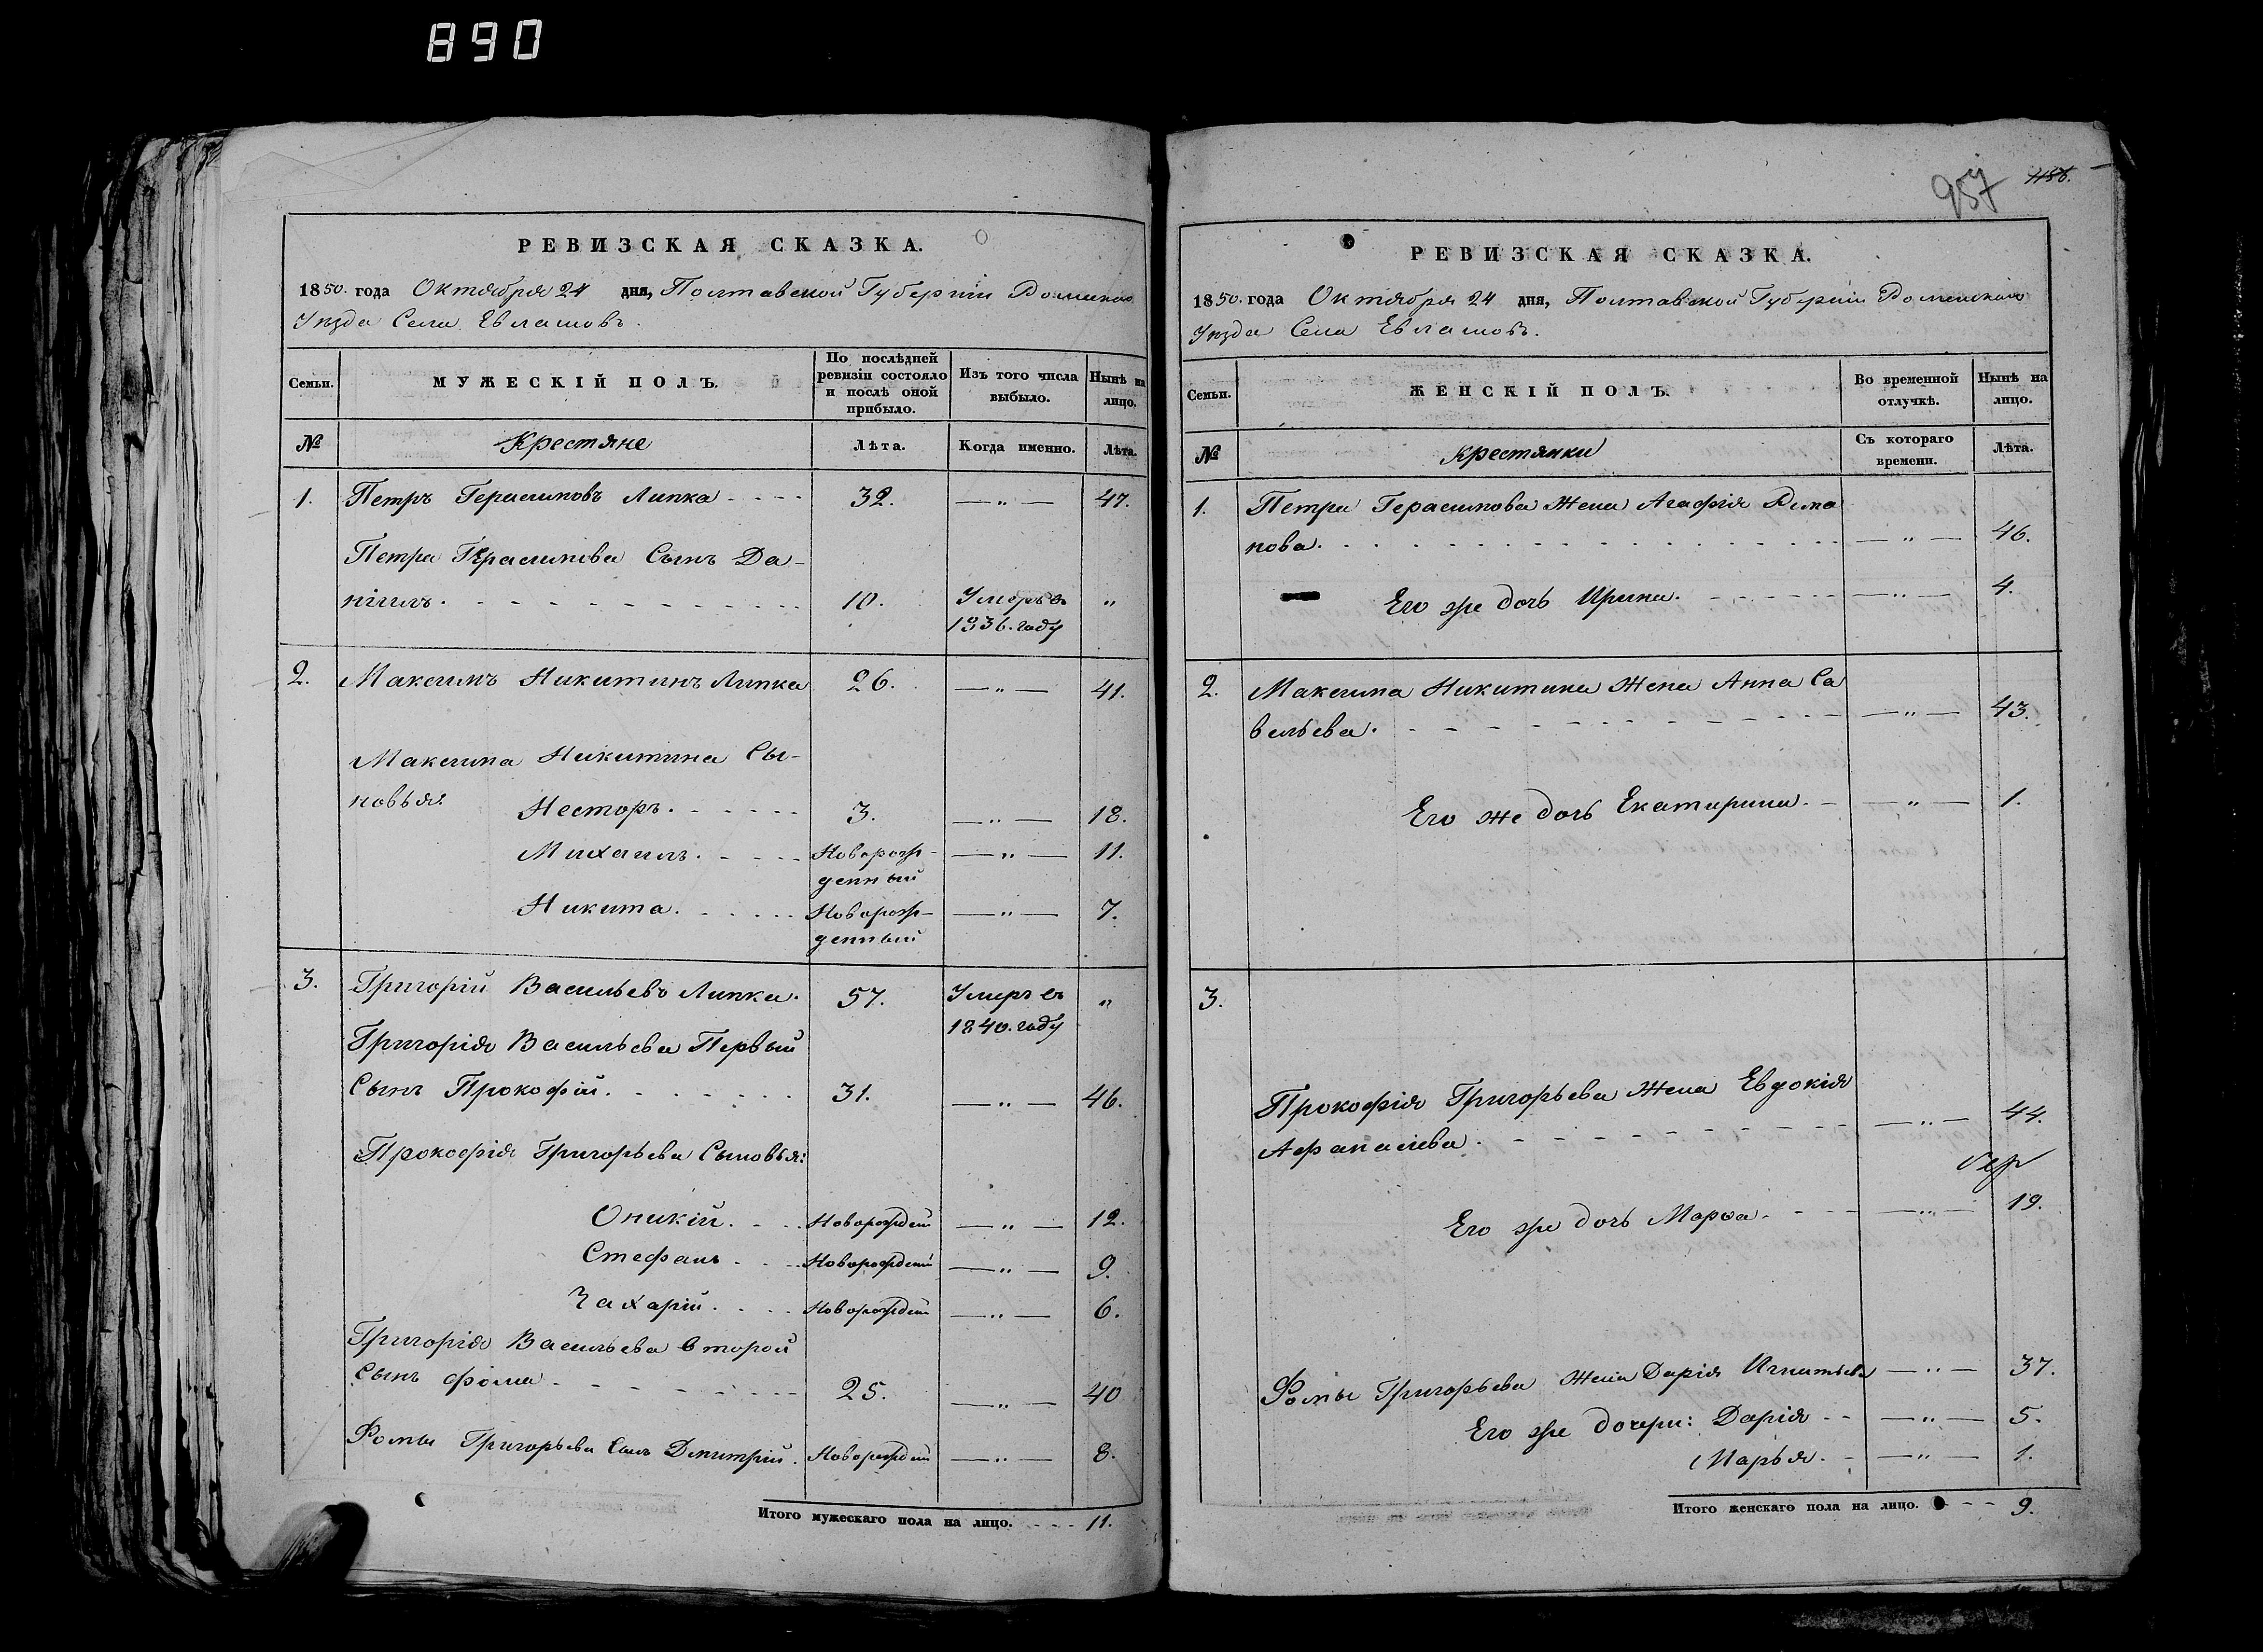 890
РЕВИЗСКАЯ СКАЗКА.
1850. года Октября 24 дня, Полтавской Губернiи Роменскаго
Уѣзда Села Евлашовъ.
Семьи.
МУЖЕСКІЙ ПОЛЪ.
По послѣдней ревизіи состояло и послѣ оной прибыло.
Изъ того числа выбыло.
Нынѣ на лицо.
№ Крестяне Лѣта. Когда именно. Лѣта.
1. Петръ Герасимовъ Липка - - - - 32. — „ — 47.
Петра Герасимова Сынъ Да-
нiилъ. - - - - - - - - - - 10. Умеръ въ „
1836. году
2. Максимъ Никитинъ Липка 26. — „ — 41.
Максима Никитина Сы-
новья:
Несторъ. - - - - - 3. — „ — 18.
Михаилъ. - - - - Новорож- — „ — 11.
денный
Никита. - - - - - Новорож- — „ — 7.
денный
3. Григорій Васильевъ Липка. 57. Умеръ въ „
1840. году
Григорія Васильева Первый
Сынъ Прокофій. - - - - - - 31. — „ — 46.
Прокофія Григорьева Сыновья:
Оникій. - - - Новорожден — „ — 12.
Стефанъ - - - Новорожден — „ — 9.
Захарій. - - - Новорожден — „ — 6.
Григорія Васильева второй
Сынъ Фома - - - - - - - - 25. — „ — 40
Фомы Григорьева Сынъ Дмитрій. Новорожден — „ — 8.
Итого мужескаго пола на лицо. - - - 11.
957 1156.
РЕВИЗСКАЯ СКАЗКА.
1850. года Октября 24 дня, Полтавской Губернiи Роменскаго
Уѣзда Села Евлашовъ.
Семьи.
ЖЕНСКІЙ ПОЛЪ.
Во временной отлучкѣ.
Нынѣ на лицо.
№ Крестянки Съ котораго времени. Лѣта.
1. Петра Герасимова Жена Агафія Рома
нова. - - - - - - - - - - - - - — „ — 46.
Его же дочь Ирина. - - - - - - — „ — 4.
2. Максима Никитина Жена Анна Са
вельева. - - - - - - - - - - - — „ — 43.
Его же дочь Екатерина. - — „ — 1.
3.
Прокофія Григорьева Жена Евдокія
Афанасиева. - - - - - - - - - - — „ — 44.
Его же дочь Марѳа. - - - - — „ — 19.
Фомы Григорьева Жена Дарія Игнатьева — „ — 37.
Его же дочери: Дарія - - — „ — 5.
Марья. - — „ — 1.
Итого женскаго пола на лицо. - - - 9.